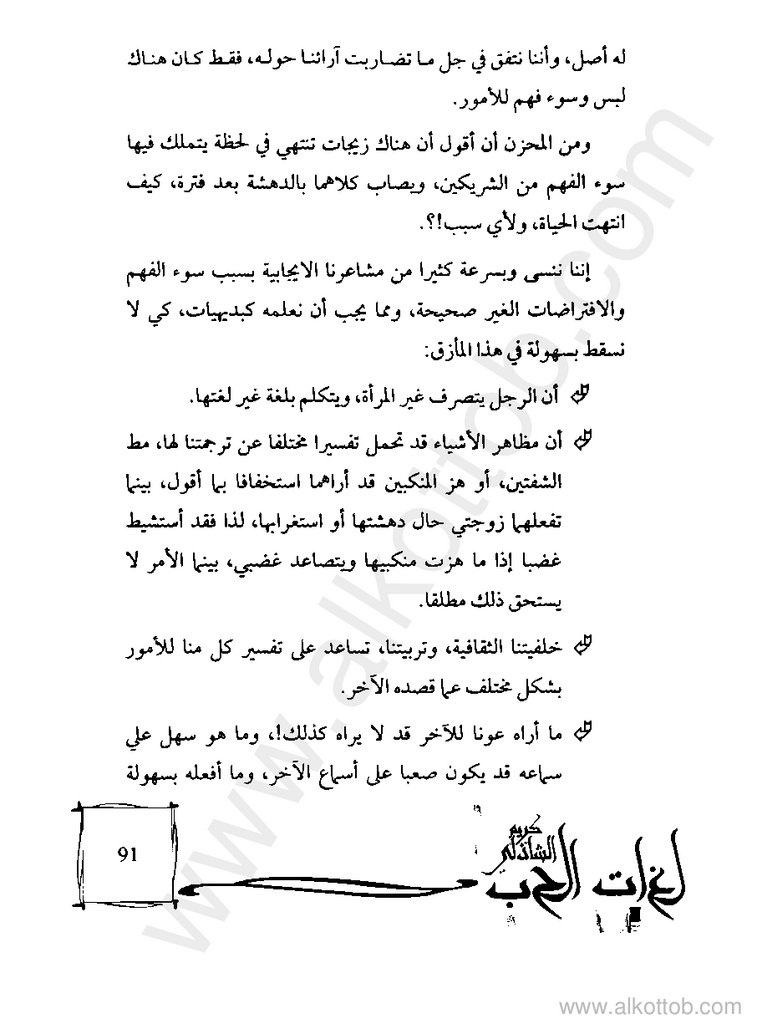 له أصل، وأننا نتفق في جل ما تضاربت آرائنا حوله، فقط كان هناك
لبس وسوء فهم للأمور.
ومن المحزن أن أقول أن هناك زيجات تنتهي في لحظة يتملك فيها
سوء الفهم من الشريكين، ويصاب كلاهما بالدهشة بعد فترة، كيف
انتهت الحياة، ولأي سبب!؟.
إننا ننسى وبسرعة كثيرا من مشاعرنا الايجابية بسبب سوء الفهم
والافتراضات الغير صحيحة، ومما يجب أن نعلمه كبديهيات، كي لا
نسقط بسهولة في هذا المأزق:
أن الرجل يتصرف غير المرأة، ويتكلم بلغة غير لغتها.
أن مظاهر الأشياء قد تحمل تفسيرا مختلفا عن ترجمتنا لها، مط
الشفتين، أو هز المنكبين قد أراهما استخفافا بما أقول، بينما
تفعلهما زوجتي حال دهشتها أو استغرابها، لذا فقد أستشيط
غضبا إذا ما هزت منكبيها ويتصاعد غضبي، بينما الأمر لا
يستحق ذلك مطلقا.
خلفيتنا الثقافية، وتربيتنا، تساعد على تفسير كل منا للأمور
بشكل مختلف عما قصده الآخر.
ما أراه عونا للآخر قد لا يراه كذلك!، وما هو سهل علي
سماعه قد يكون صعبا على أسماع الآخر، وما أفعله بسهولة
كريم
الشاذلي
لغات الحب
91
www.alkottob.com
www.alkottob.com